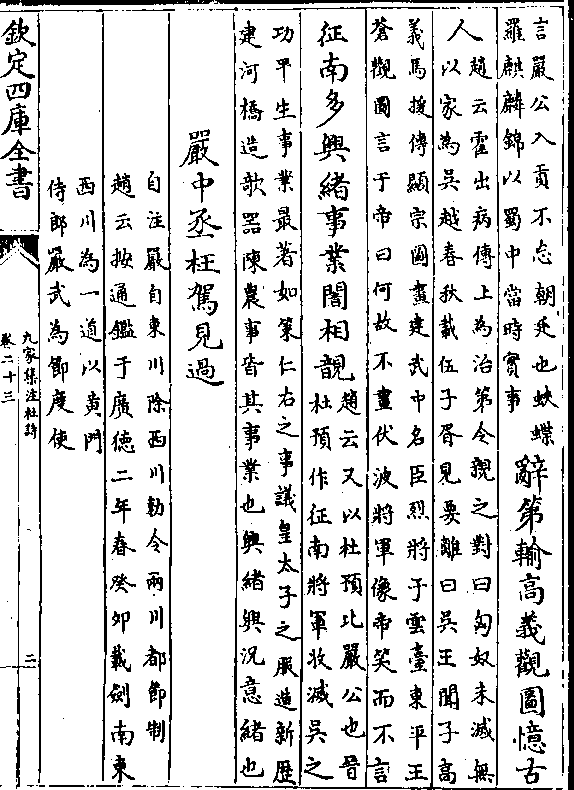 言嚴公入貢不忘朝廷也蛺蝶
羅麒麟錦以蜀中當時實事
辭第輸高義觀圖憶古
人
趙云霍去病傳上為治第令視之對曰匈奴未滅無
以家為吳越春秋載伍子胥見要離曰吳王聞子高
義馬援傳顯宗圖畫建武中名臣烈將于雲臺東平王
蒼觀圖言于帝曰何故不畫伏波將軍像帝笑而不言
征南多興緒事業闇相親
趙云又以杜預比嚴公也晉
杜預作征南將軍收滅吳之
功平生事業最著如籌仁右之事議皇太子之服造新歷
建河橋造欹器陳農事皆其事業也興緒興況意緒也
嚴中丞枉駕見過
自注嚴自東川除西川勅令兩川都節制
趙云按通鑑于廣德二年春癸卯載劍南東
西川為一道以黄門
侍郎嚴武為節度使
欽定四庫全書
九家集注杜詩
卷二十三
二